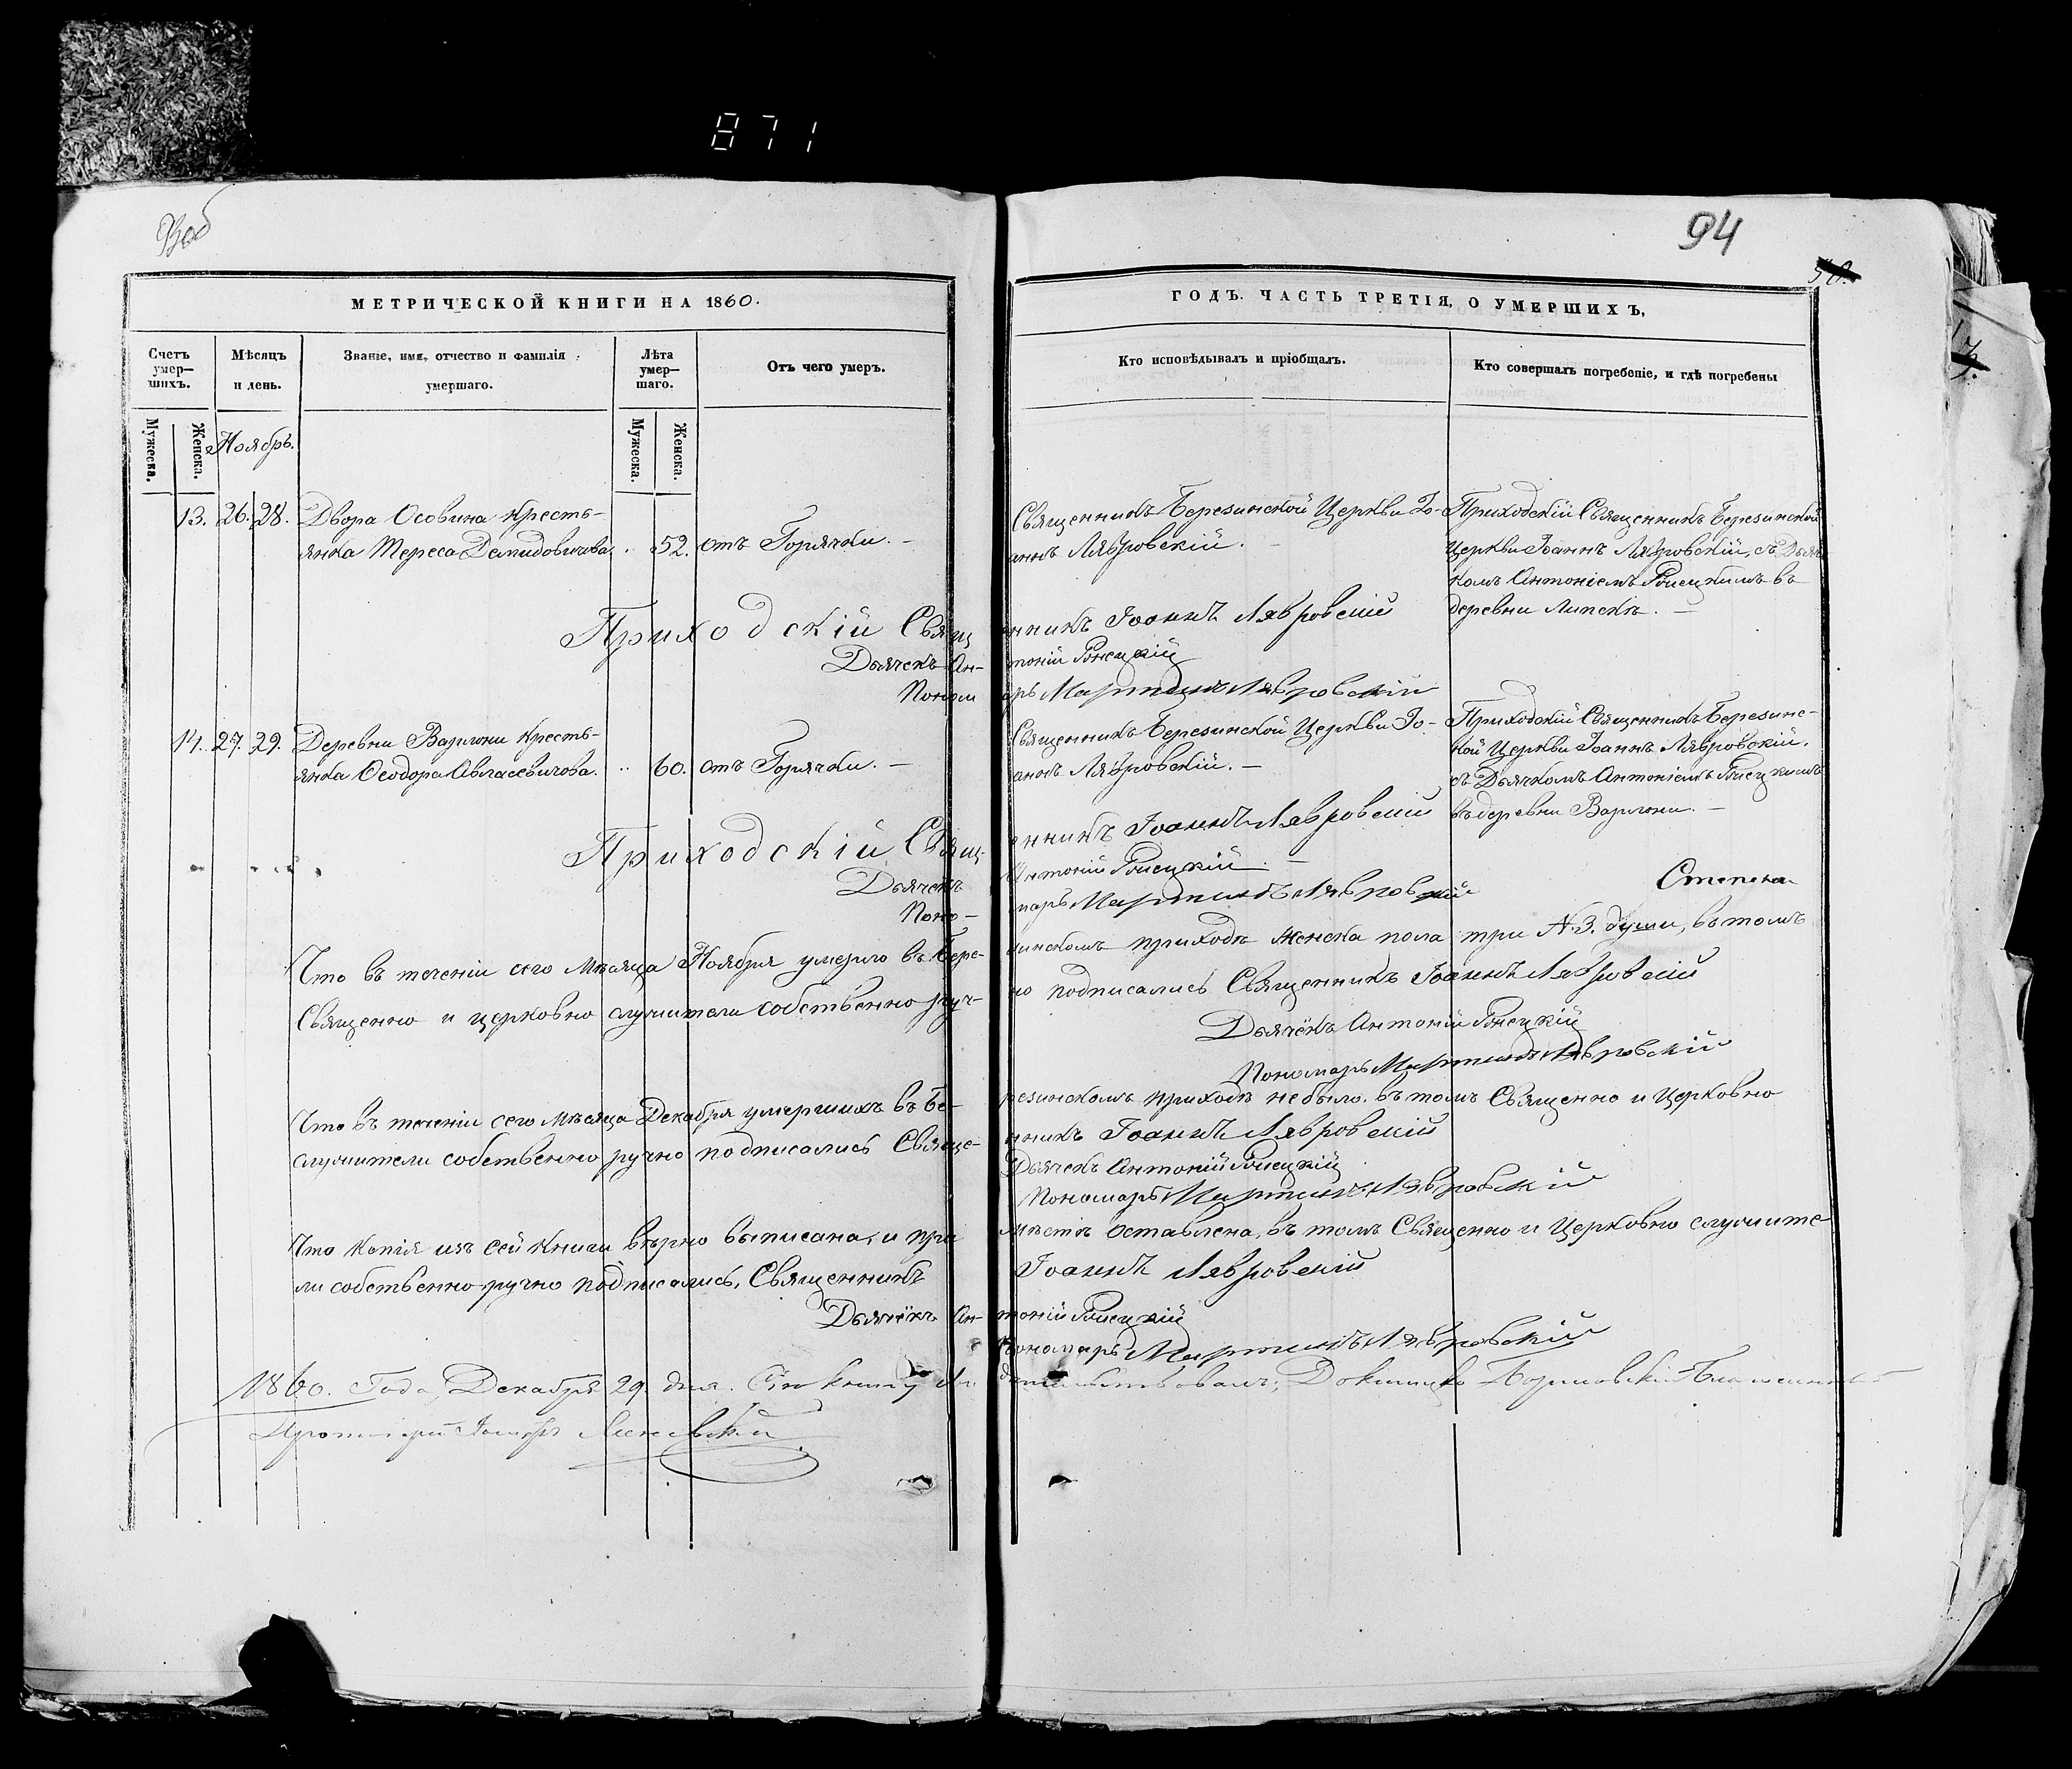 871
94
МЕТРИЧЕСКОЙ КНИГИ НА 1860.
ГОДЪ. ЧАСТЬ ТРЕТІЯ, О УМЕРШИХЪ.
Счетъ умер-шихъ.
Мѣсяцъ и день.
Званіе, имя, отчество и фамилія умершаго.
Лѣта умер-шаго.
Отъ чего умеръ.
Кто исповѣдывалъ и пріобщалъ.
Кто совершалъ погребеніе, и гдѣ погребены
Мужеска.
Женска.
Ноябрь.
Мужеска.
Женска.
13. 26. 28. Двора Осовина кресть-
янка Тереса Демидовичова. 52. отъ Горячки.
Священникъ Березинской Церкви Іо-
аннъ Лявровскій.
Приходскій Священникъ Березинской
Церкви Іоаннъ Лявровскій, съ Дьяч
комъ Антоніемъ въ
деревни Липскъ.
Приходскій Священникъ Іоаннъ Лявровскій
Дьячекъ Антоній
Пономарь Мартинъ Лявровскій
14. 27. 29. Деревни кресть-
янка Ѳеодора Авласевичова. 60. отъ Горячки.
Священникъ Березинской Церкви Іо-
аннъ Лявровскій.
Приходскій Священникъ Березинс-
кой Церкви Іоаннъ Лявровскій,
съ Дьячкомъ Антоніемъ
въ деревни
Приходскій Священникъ Іоаннъ Лявровскій
Дьячекъ Антоній
Пономарь Мартинъ Лявровскій
Степена
Что въ теченіи сего Мѣсяца Ноября умерло въ Березинскомъ приходѣ женска пола три №3. души, въ томъ
Священно и церковно служители собственно ручно подписались Священникъ Іоаннъ Лявровскій
Дьячёкъ Антоній
Пономарь Мартинъ Лявровскій
Что въ теченіи сего Мѣсяца Декабря умершихъ въ Березинскомъ приходѣ небыло. въ томъ Священно и Церковно
служители собственно ручно подписались Священникъ Іоаннъ Лявровскій
Дьячекъ Антоній
Пономарь Мартинъ Лявровскій
Что копія изъ сей книги вѣрно выписана, и при мѣстѣ оставлена, въ томъ Священно и Церковно служите
ли собственно ручно подписались, Священникъ Іоаннъ Лявровскій
Дьячёкъ Антоній
Пономарь Мартинъ Лявровскій
1860. Года, Декабря 29. дня. Сію книгу